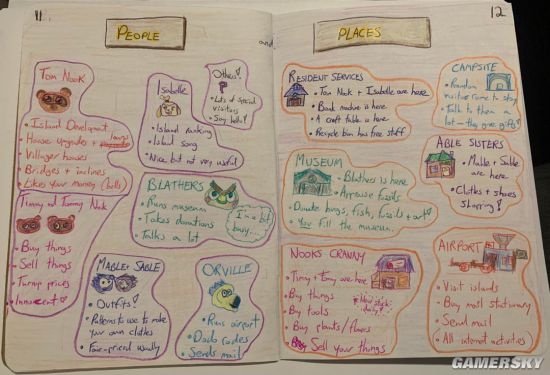 11
PEOPLE
and
TOM NOOK
• Island Development
• House upgrades + loans
• Villager houses
• Bridges + inclines
• Likes your money (bells)
Timmy and Tommy Nook
• Buy things
• Sell things
• Turnip prices
• Innocent?
Isabelle
• Island ranking
• Island song
• Nice but not very useful
Others!
?
• Lots of special
visitors
• Say hello!
BLATHERS
• Runs museum
• Takes donations
• Talks a lot
I'm a bit
busy...
MABLE + SABLE
• Outfits!
• Patterns to use to make
your own clothes
• Fair-priced usually
ORVILLE
• Runs airport
• Dodo codes
• Sends mail
12
PLACES
RESIDENT SERVICES
• Tom Nook + Isabelle are here
• Bank machine is here
• A craft table is here
• Recycle bin has free stuff
MUSEUM
• Blathers is here
• Appraise fossils
• Donate bugs, fish, fossils + art!
• You fill the museum
NOOKS CRANNY
• Timmy + Tommy are here
• Buy things
• Buy tools
• Buy plants/flowers
• Sell your things
* New stock
daily! *
CAMPSITE
• Random
visitor come to stay
• Talk to them a
lot - they give gifts!
ABLE SISTERS
• Mable + Sable
are here
• Clothes + shoes
shopping!
AIRPORT
• Visit islands
• Buy mail stationary
• Send mail
• All internet activities
GAMERSKY